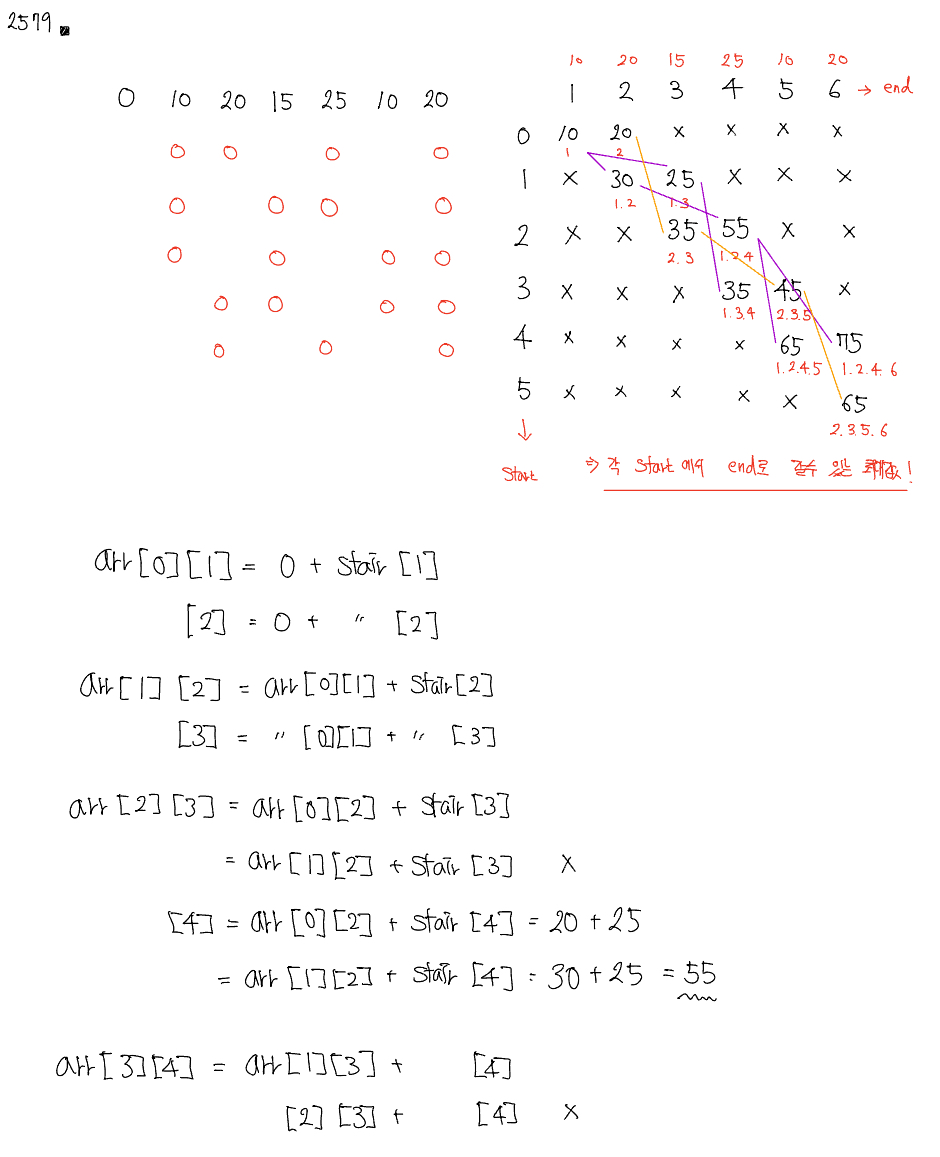 2579.
0 10 20 15 25 10 20
O O O O
O O O O
O O O O
O O O O
O O O
10 20 15 25 10 20
1 2 3 4 5 6 → end
0 10 20 x x x x
1 2
1 x 30 25 x x x
1.2 1.3
2 x x 35 55 x x
2.3 1.2.4
3 x x x 35 45 x
1.3.4 2.3.5
4 x x x x 65 75
1.2.4.5 1.2.4.6
5 x x x x x 65
2.3.5.6
↓
start
⇒ 각 start 에서 end로 갈수 있는 최대값!
arr[0][1] = 0 + stair[1]
[2] = 0 + 〃 [2]
arr[1][2] = arr[0][1] + stair[2]
[3] = 〃 [0][1] + 〃 [3]
arr[2][3] = arr[0][2] + stair[3]
= arr[1][2] + stair[3] x
[4] = arr[0][2] + stair[4] = 20 + 25
= arr[1][2] + stair[4] = 30 + 25 = 55
arr[3][4] = arr[1][3] + [4]
[2][3] + [4] x